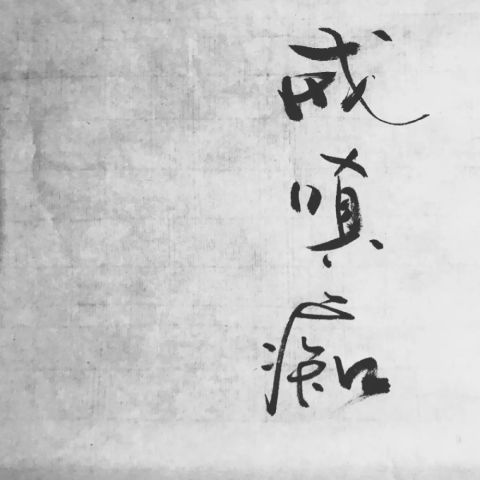 戒嗔痴